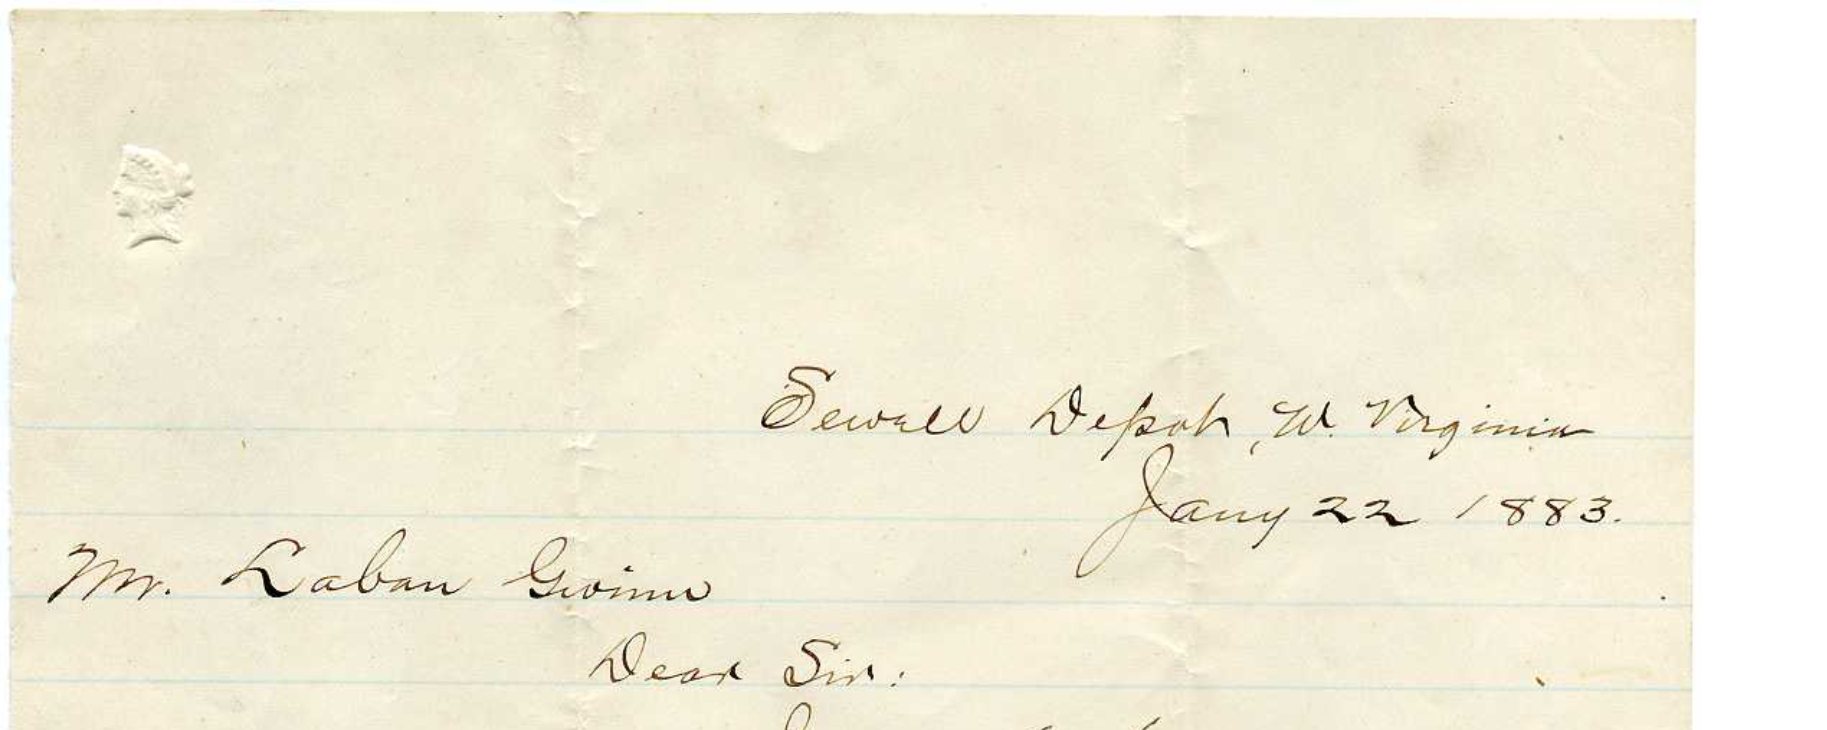 Sewell Depot, W. Virginia
Jany 22 1883.
Mr. Laban Gwinn
Dear Sir: